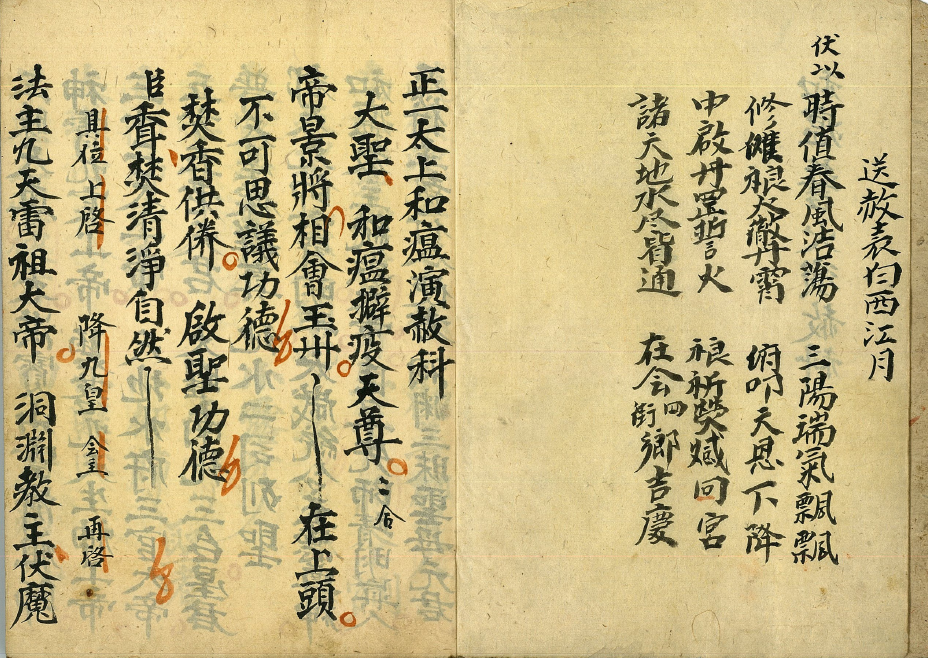 送赦表白西江月
伏以時值春風浩蕩 三陽端氣飄飄
修雔 徹丹霄 俯叩天恩下降
中啟丹 火 祈 回宮
諸天地水尽皆通 在会四街鄉吉慶
正一太上和瘟演赦科
大聖 和瘟擗疫天尊 二合
帝景將相會玉州 在上頭
不可思議功德
焚香供养 啟聖功德
臣聞焚清淨自然
具位上啓 降九皇 会主 再啓
法主九天雷祖大帝 洞淵教主伏魔